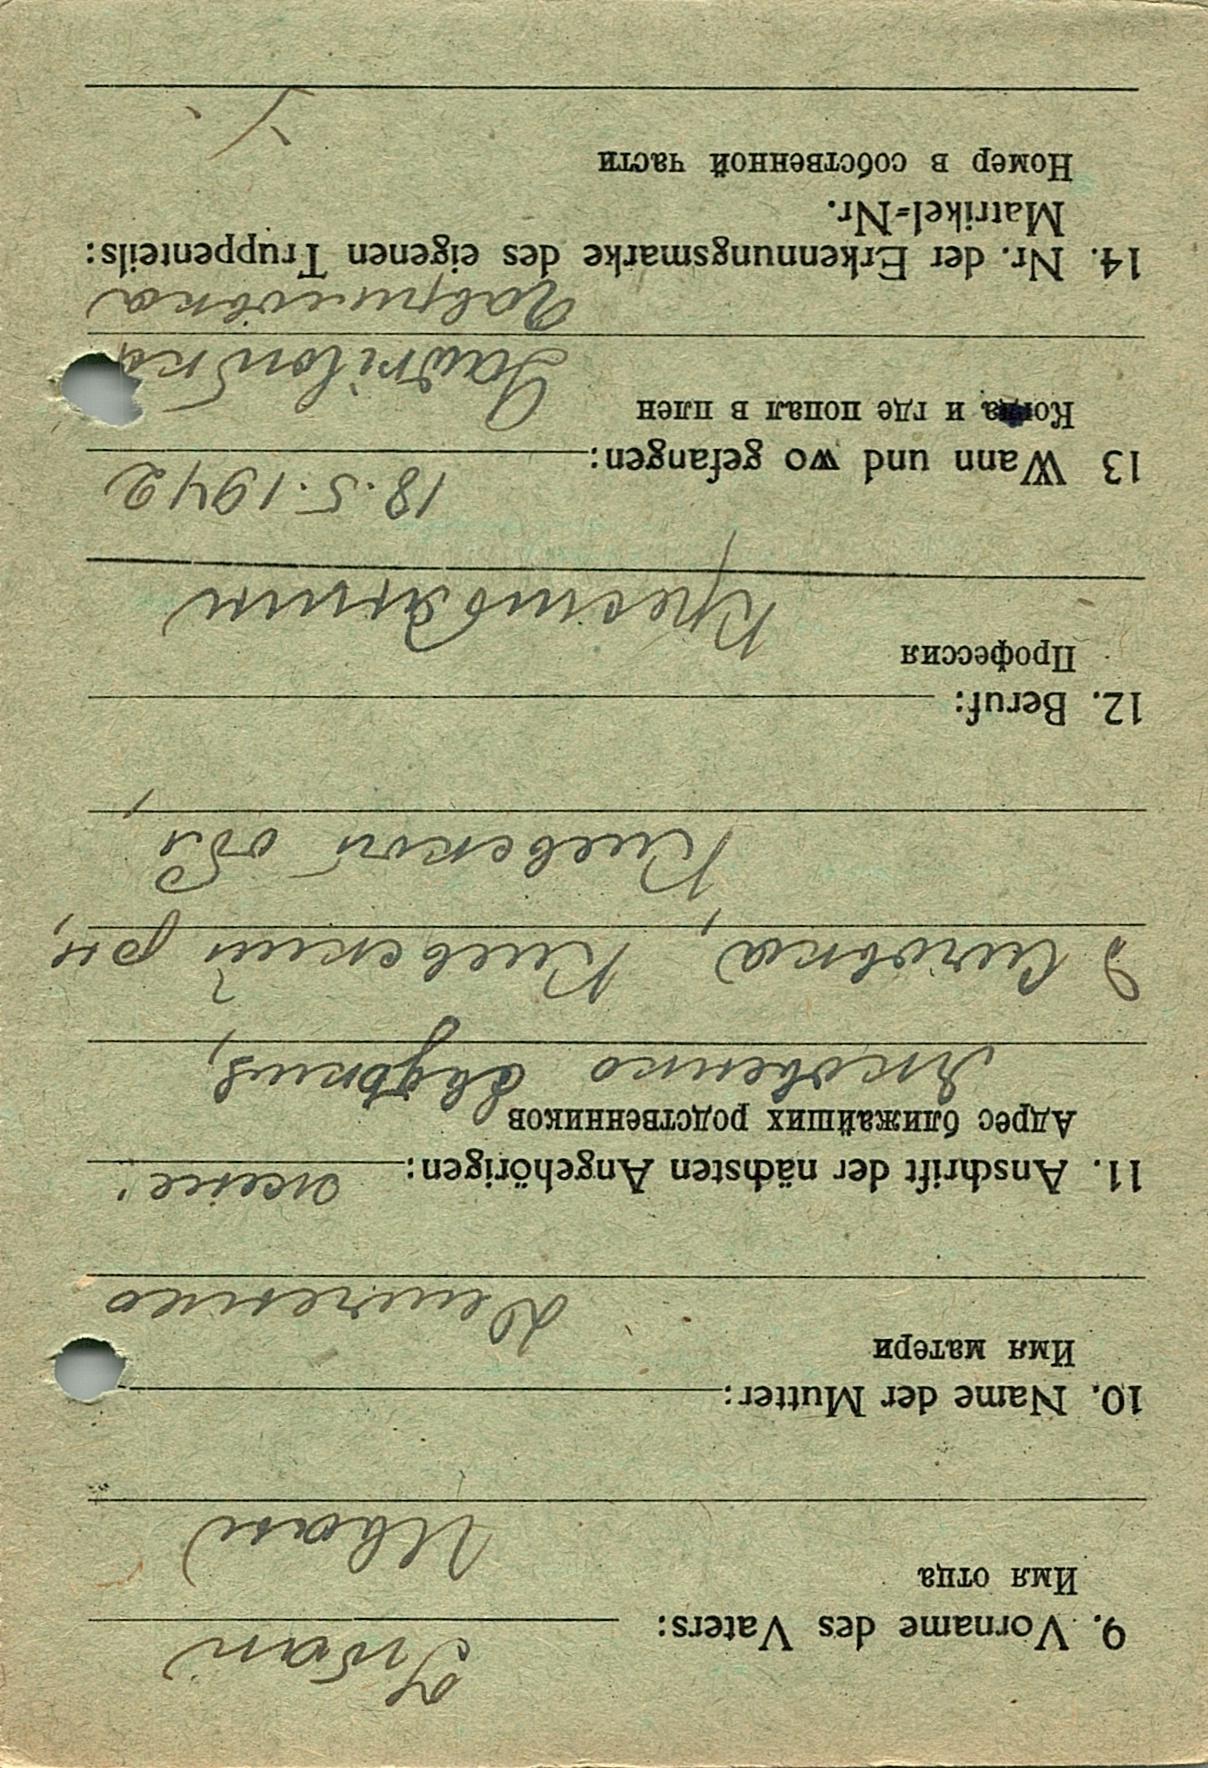 Iwan
9. Vorname des Vaters:
Имя отца
Иван
10. Name der Mutter:
Имя матери
Демченко
11. Anschrift der nächsten Angehörigen: жене:
Адрес ближайших родственников
Яковенко Евдокия,
Киевский рн,
Киевской обл
12. Beruf:
Профессия
Крестьянин
13 Wann und wo gefangen: 18.5.1942
Когда и где попал в плен
Gawrilowka
Гавриловка
14. Nr. der Erkennungsmarke des eigenen Truppenteils:
Matrikel-Nr.
Номер в собственной части